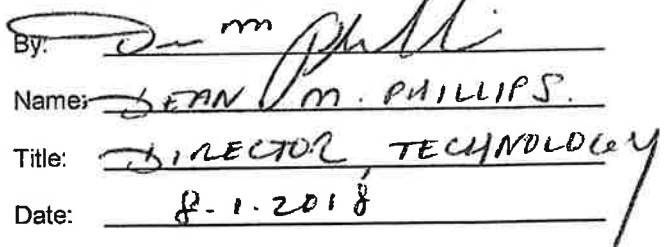 By: Dean M Phillips
Name: DEAN M. PHILLIPS.
Title: DIRECTOR TECHNOLOGY
Date: 8-1-2018